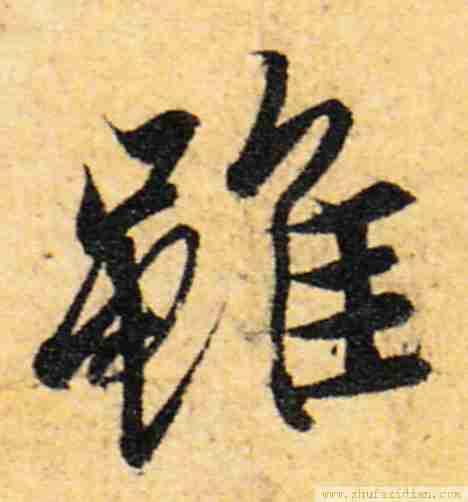 雖
www.zhufazidian.com